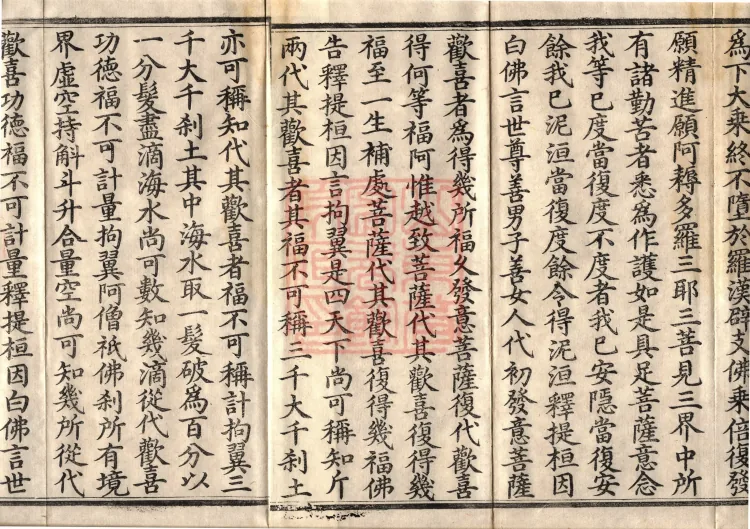 為下大乘終不墮於羅漢辟支佛乘倍復發
願精進願阿耨多羅三耶三菩見三界中所
有諸勤苦者悉為作護如是具足菩薩意念
我等已度當復度不度者我已安隱當復安
餘我已泥洹當復度餘令得泥洹釋提桓因
白佛言世尊善男子善女人代初發意菩薩
歡喜者為得幾所福久發意菩薩復代歡喜
得何等福阿惟越致菩薩代其歡喜復得幾
福至一生補處菩薩代其歡喜復得幾福佛
告釋提桓因言拘翼是四天下尚可稱知斤
兩代其歡喜者其福不可稱三千大千剎土
亦可稱知代其歡喜者福不可稱計拘翼三
千大千剎土其中海水取一髮破為百分以
一分髮盡滴海水尚可數知幾滴從代歡喜
功德福不可計量拘翼阿僧祇佛剎所有境
界虛空持斛斗升合量空尚可知幾所從代
歡喜功德福不可計量釋提桓因白佛言世